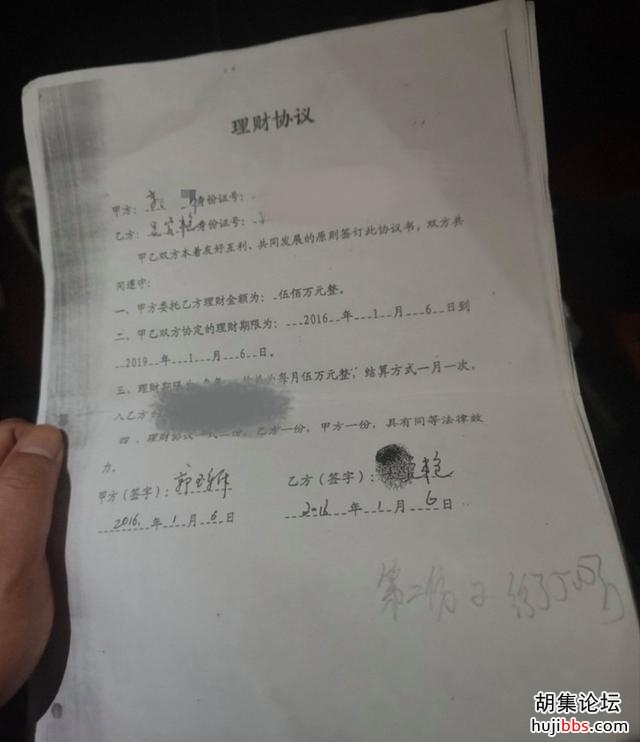 理财协议
甲方： 身份证号：
乙方： 身份证号：
甲乙双方本着友好互利、共同发展的原则签订此协议书，双方共
同遵守：
一、甲方委托乙方理财金额为：伍佰万元整。
二、甲乙双方协定的理财期限为：2016年1月6日到
2019年1月6日。
三、理财期限 每月伍万元整；结算方式一月一次，
入乙方
四、理财协议一式二份，乙方一份，甲方一份，具有同等法律效
力。
甲方（签字）： 乙方（签字）：
2016.年1月6日 2016年1月6日
第二份
胡集论坛
hujibbs.com